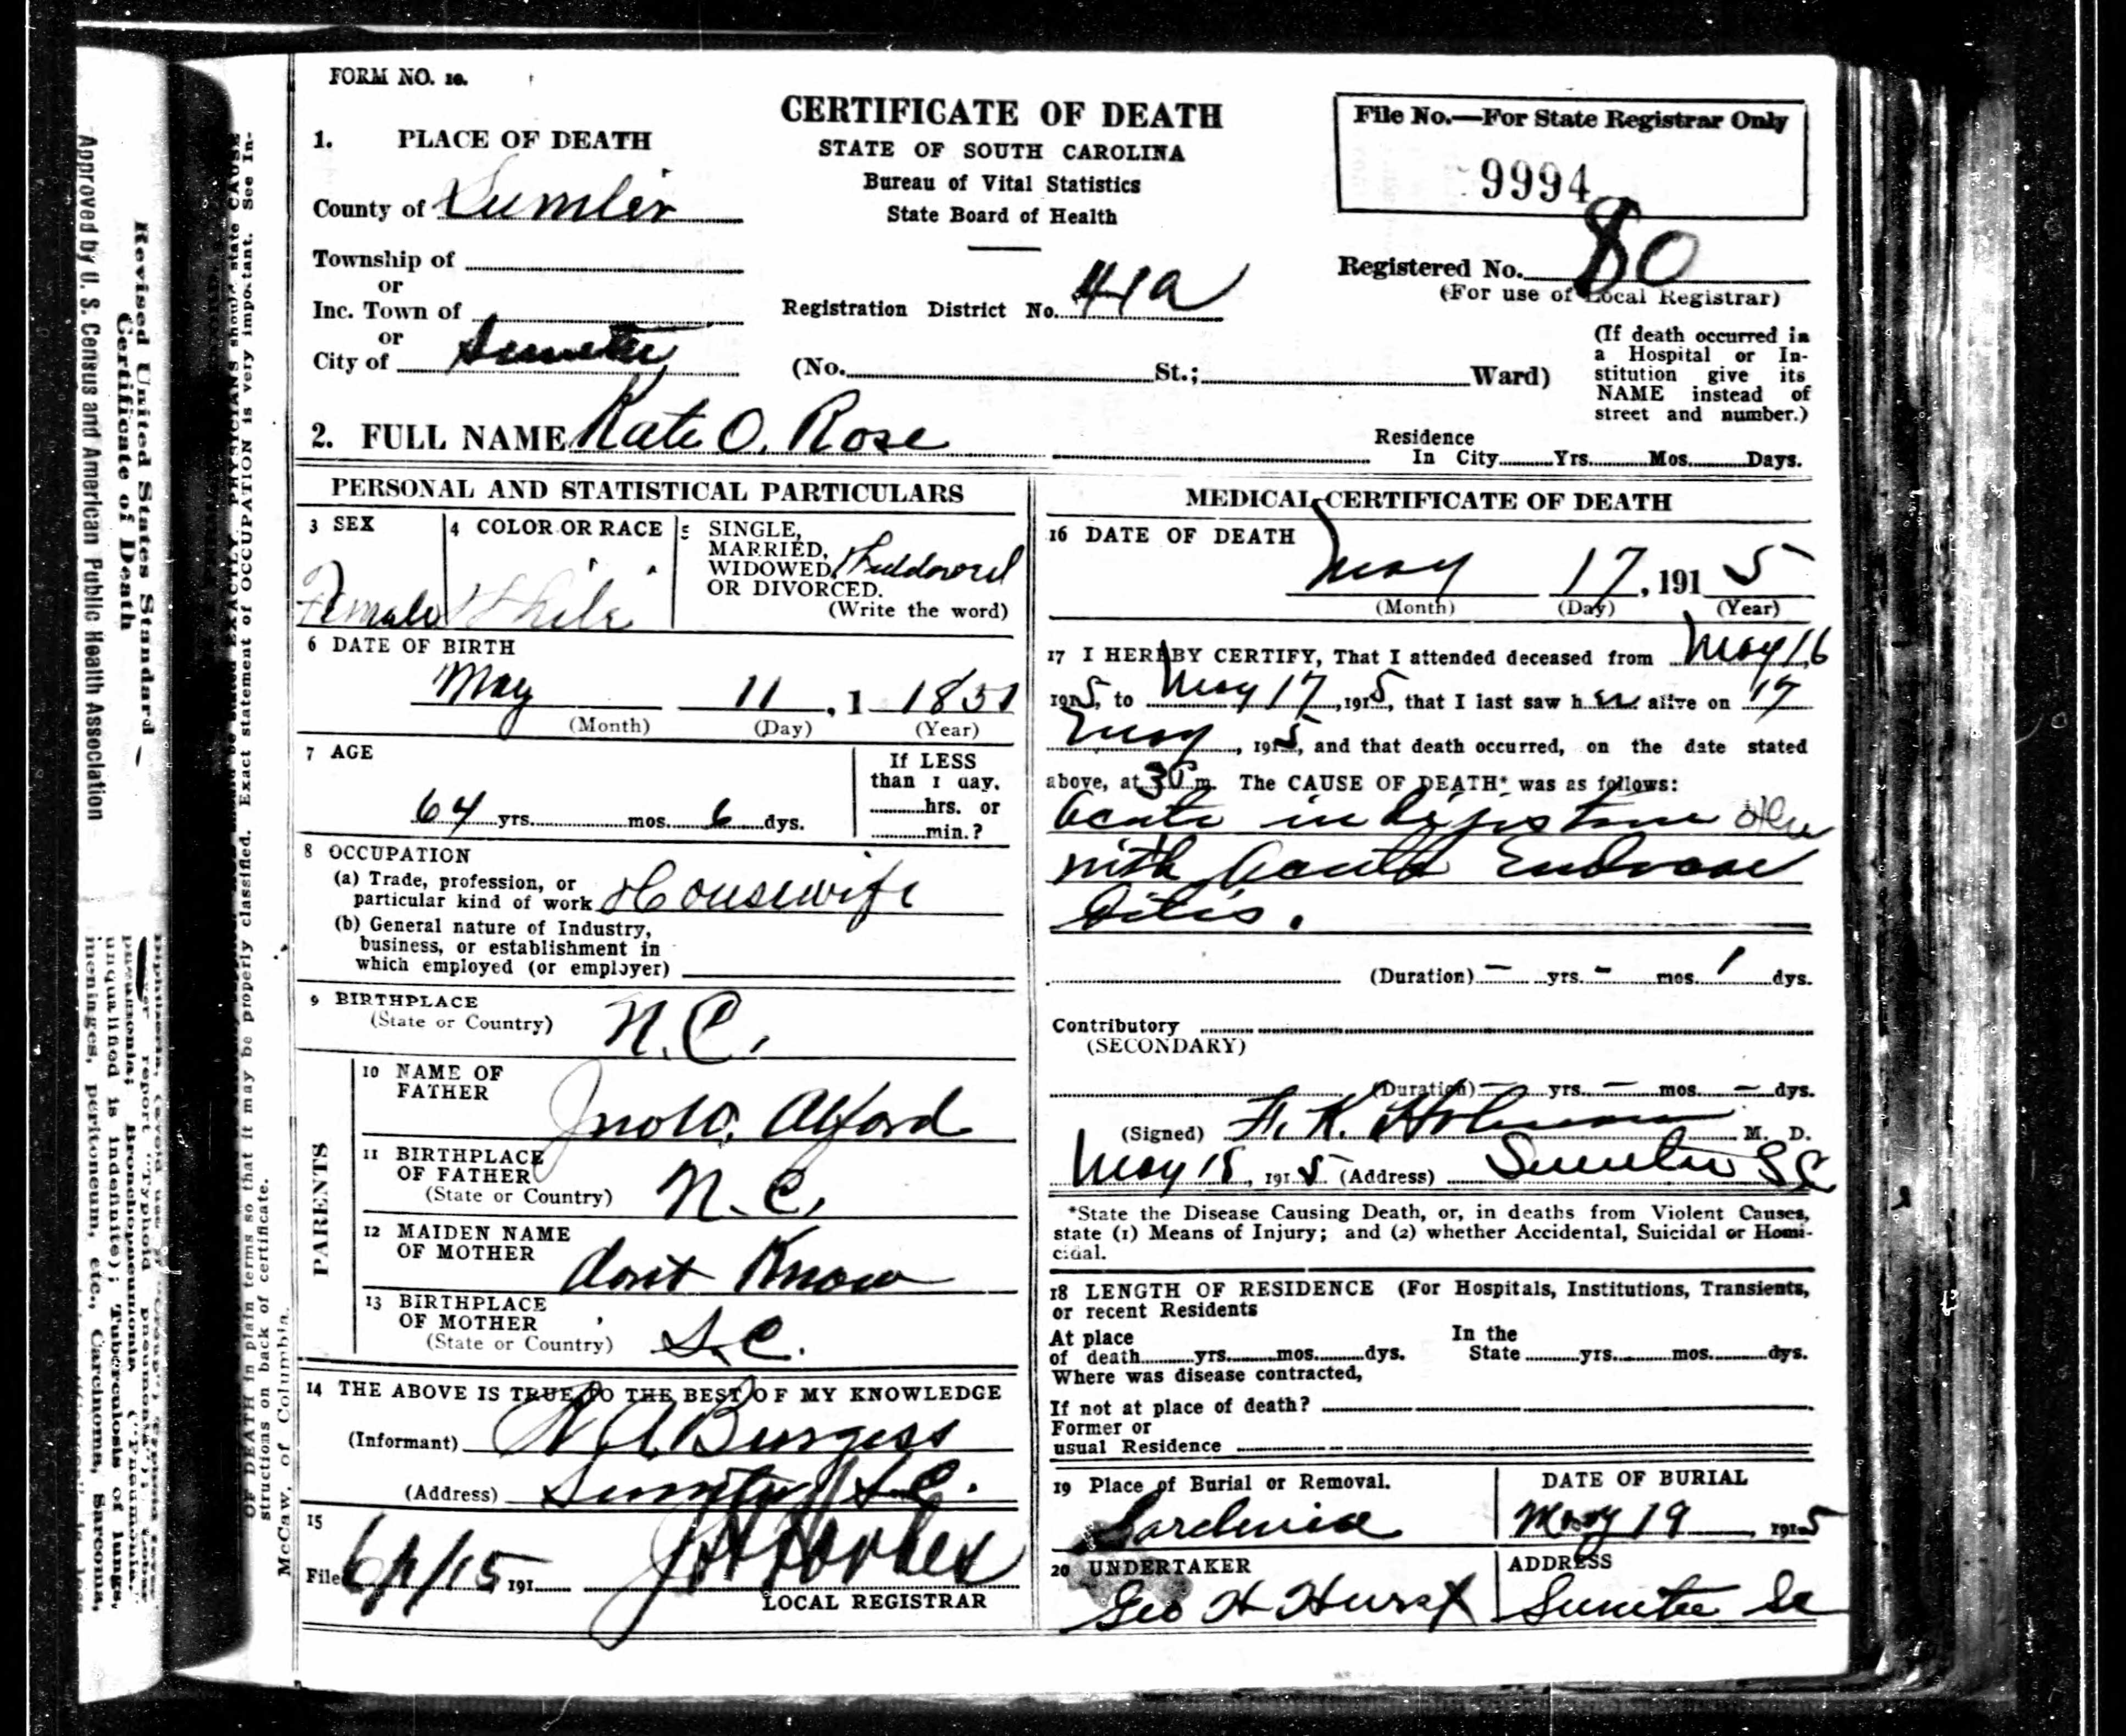 FORM NO. 10.
CERTIFICATE OF DEATH
STATE OF SOUTH CAROLINA
Bureau of Vital Statistics
State Board of Health
File No.—For State Registrar Only
9994
1. PLACE OF DEATH
County of Sumter
Township of
or
Inc. Town of
or
City of Sumter
Registration District No. 41a
Registered No. 80
(For use of Local Registrar)
(No. St.; Ward)
(If death occurred in
a Hospital or In-
stitution give its
NAME instead of
street and number.)
2. FULL NAME Kate O. Rose
Residence
In City Yrs. Mos. Days.
PERSONAL AND STATISTICAL PARTICULARS
3 SEX
Female
4 COLOR OR RACE
White
5 SINGLE,
MARRIED,
WIDOWED,
OR DIVORCED.
(Write the word)
Widowed
6 DATE OF BIRTH
May 11, 1 1851
(Month) (Day) (Year)
7 AGE
64 yrs. mos. 6 dys.
If LESS
than 1 day.
hrs. or
min.?
8 OCCUPATION
(a) Trade, profession, or
particular kind of work Housewife
(b) General nature of Industry,
business, or establishment in
which employed (or employer)
9 BIRTHPLACE
(State or Country) N.C.
PARENTS
10 NAME OF
FATHER Jno W. Alford
11 BIRTHPLACE
OF FATHER
(State or Country) N.C.
12 MAIDEN NAME
OF MOTHER dont Know
13 BIRTHPLACE
OF MOTHER
(State or Country) S.C.
14 THE ABOVE IS TRUE TO THE BEST OF MY KNOWLEDGE
(Informant) Burgess
(Address) Sumter S.C.
15
File 6/1/15 191
LOCAL REGISTRAR
MEDICAL CERTIFICATE OF DEATH
16 DATE OF DEATH
May 17, 1915
(Month) (Day) (Year)
17 I HEREBY CERTIFY, That I attended deceased from May 16
1915, to May 17, 1915, that I last saw her alive on 17
May, 1915, and that death occurred, on the date stated
above, at 3 m. The CAUSE OF DEATH* was as follows:
Acute indigestion
with Acute Endocar
ditis.
(Duration) — yrs. — mos. 1 dys.
Contributory
(SECONDARY)
(Duration) — yrs. — mos. — dys.
(Signed) M. D.
May 18, 1915 (Address) Sumter SC
*State the Disease Causing Death, or, in deaths from Violent Causes,
state (1) Means of Injury; and (2) whether Accidental, Suicidal or Homi-
cidal.
18 LENGTH OF RESIDENCE (For Hospitals, Institutions, Transients,
or recent Residents
At place
of death yrs. mos. dys.
In the
State yrs. mos. dys.
Where was disease contracted,
If not at place of death?
Former or
usual Residence
19 Place of Burial or Removal.
Sardinia
DATE OF BURIAL
May 19 1915
20 UNDERTAKER
Geo H Hurst
ADDRESS
Sumter Sc
Revised United States Standard
Certificate of Death
Approved by U. S. Census and American Public Health Association
OF DEATH in plain terms so that it may be properly classified. Exact statement of OCCUPATION is very important. See In-
structions on back of certificate.
McCaw, of Columbia.